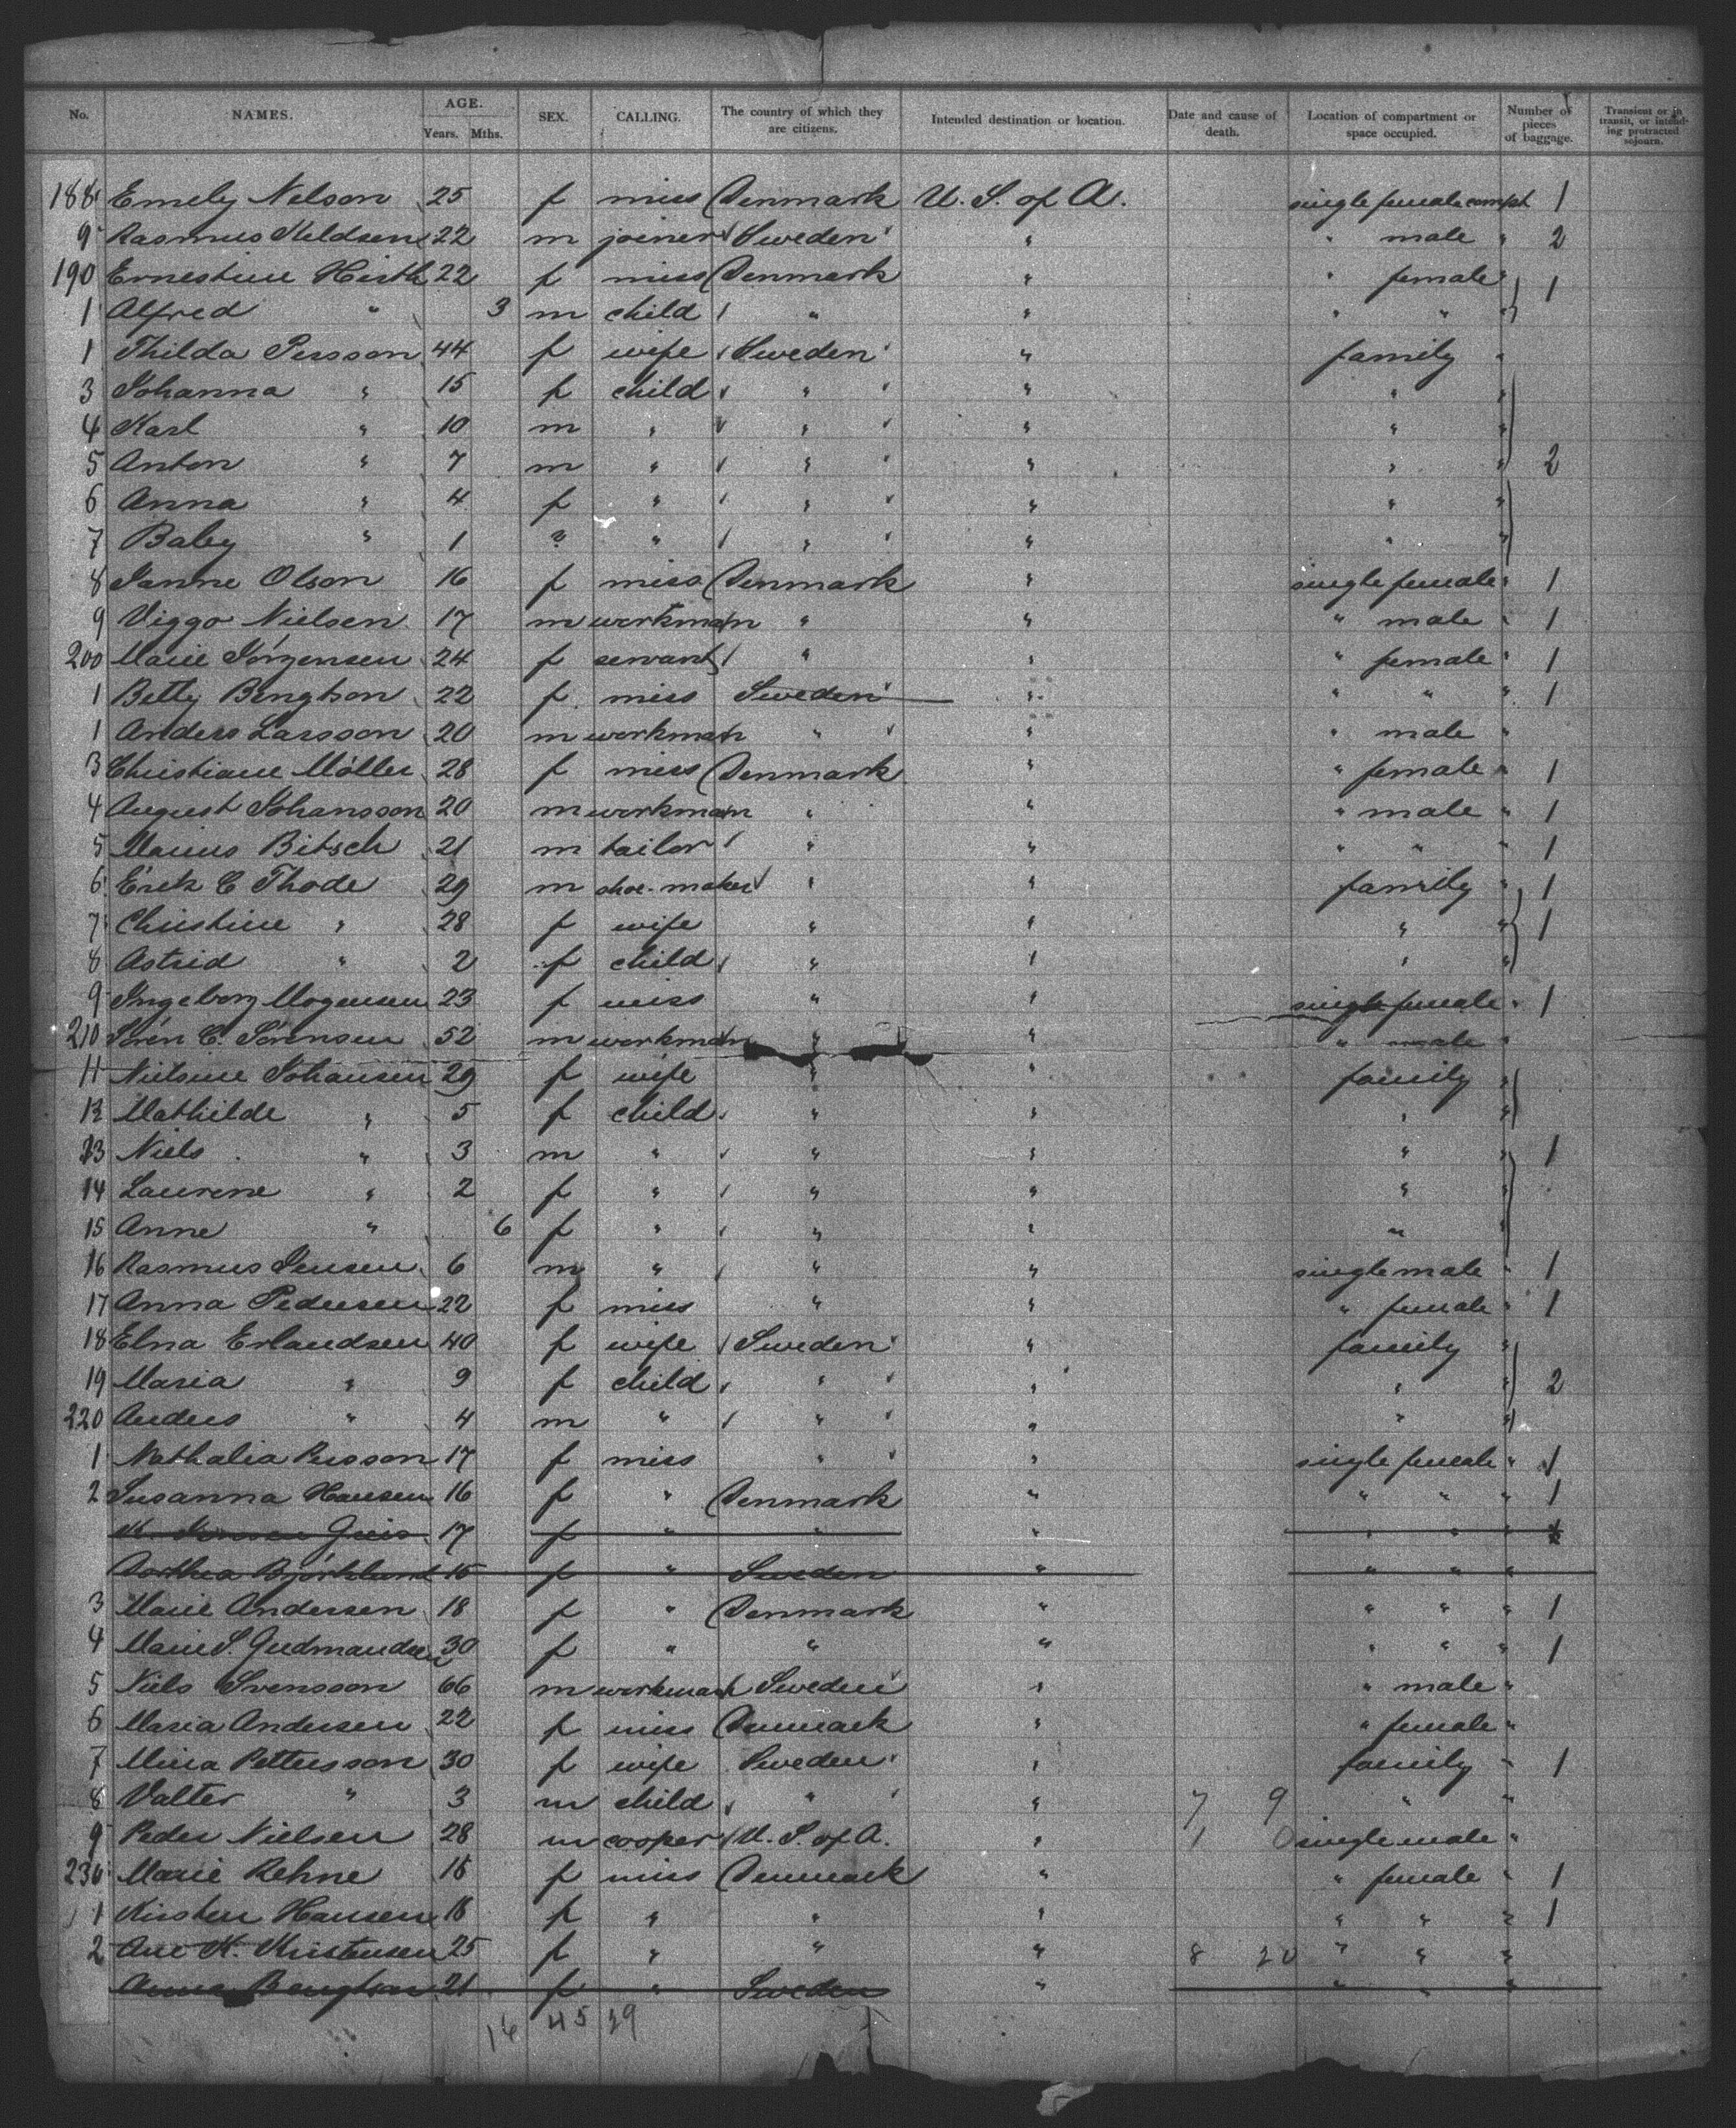 No. NAMES. AGE. Years. Mths. SEX. CALLING. The country of which they are citizens. Intended destination or location. Date and cause of death. Location of compartment or space occupied. Number of pieces of baggage. Transient or in transit, or intending protracted sojourn.
188 Emely Nelson 25 f miss Denmark U. S. of A. single female compt 1
9 Rasmus Kildsen 22 m joiner Sweden " " male " 2
190 Ernestine Hirth 22 f miss Denmark " " female " 1
1 Alfred " 3 m child " " " " "
1 Thilda Persson 44 f wife Sweden " family "
3 Johanna " 15 f child " " " "
4 Karl " 10 m " " " " "
5 Anton " 7 m " " " " " 2
6 Anna " 4 f " " " " "
7 Baby " 1 ? " " " " "
8 Janne Olson 16 f miss Denmark " single female " 1
9 Viggo Nielsen 17 m workman " " " male " 1
200 Marie Jörgensen 24 f servant " " " female " 1
1 Betty Bengtson 22 f miss Sweden " " " " 1
1 Anders Larsson 20 m workman " " " male "
3 Christiane Möller 28 f miss Denmark " " female " 1
4 August Johansson 20 m workman " " " male " 1
5 Marius Bitsch 21 m tailor " " " " " 1
6 Erick C Thode 29 m shoe-maker " " family " 1
7 Christine " 28 f wife " " " " 1
8 Astrid " 2 f child " " " "
9 Ingeborg Mogensen 23 f miss " " single female " 1
210 Sören C. Sörensen 52 m workman " " " male "
11 Nielsine Johansen 29 f wife " " family "
12 Mathilde " 5 f child " " " "
13 Niels " 3 m " " " " " 1
14 Laurene " 2 f " " " " "
15 Anne " 6 f " " " "
16 Rasmus Jensen 6 m " " " single male " 1
17 Anna Pedersen 22 f miss " " " female " 1
18 Elna Erlandsen 40 f wife Sweden " family "
19 Maria " 9 f child " " " " 2
220 Anders " 4 m " " " " "
1 Nathalia Persson 17 f miss " " single female " 1
2 Susanna Hansen 16 f " Denmark " " " " 1
17 f " " " " " "
Dorthea Björklund 15 f " Sweden " " " "
3 Marie Andersen 18 f " Denmark " " " " 1
4 Marie S. Gudmandsen 30 f " " " " " " 1
5 Niels Svensson 66 m workman Sweden " " male "
6 Maria Andersen 22 f miss Denmark " " female "
7 Mina Pettersson 30 f wife Sweden " family " 1
8 Valter " 3 m child " " 7 9 " "
9 Peder Nielsen 28 m cooper U. S. of A. " 1 0 single male "
230 Marie Rehne 18 f miss Denmark " " female " 1
1 Kirsten Hansen 18 f " " " " " " 1
2 Ane K. Kristensen 25 f " " " 8 20 " " "
Anna Bengtson 21 f " Sweden " " " "
16 45 29